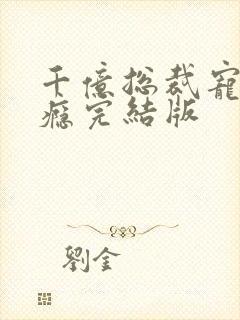 千億总裁寵
癮完結版
劉金